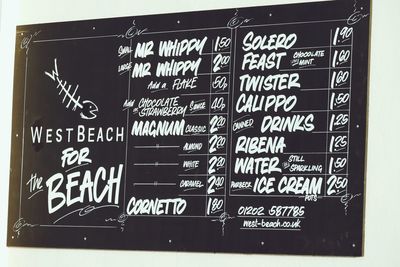 WESTBEACH
FOR
the BEACH
SMALL MR WHIPPY 1.50
LARGE MR WHIPPY 2.00
Add a FLAKE 50p
Add CHOCOLATE STRAWBERRY Sauce 40p
MAGNUM CLASSIC 2.00
" ALMOND 2.20
" WHITE 2.20
" CARAMEL 2.40
CORNETTO 1.80
SOLERO 1.90
FEAST CHOCOLATE MINT 1.60
TWISTER 1.60
CALIPPO 1.50
CANNED DRINKS 1.25
RIBENA 1.25
WATER STILL SPARKLING 1.50
PURBECK ICE CREAM POTS 2.50
01202 587785
west-beach.co.uk